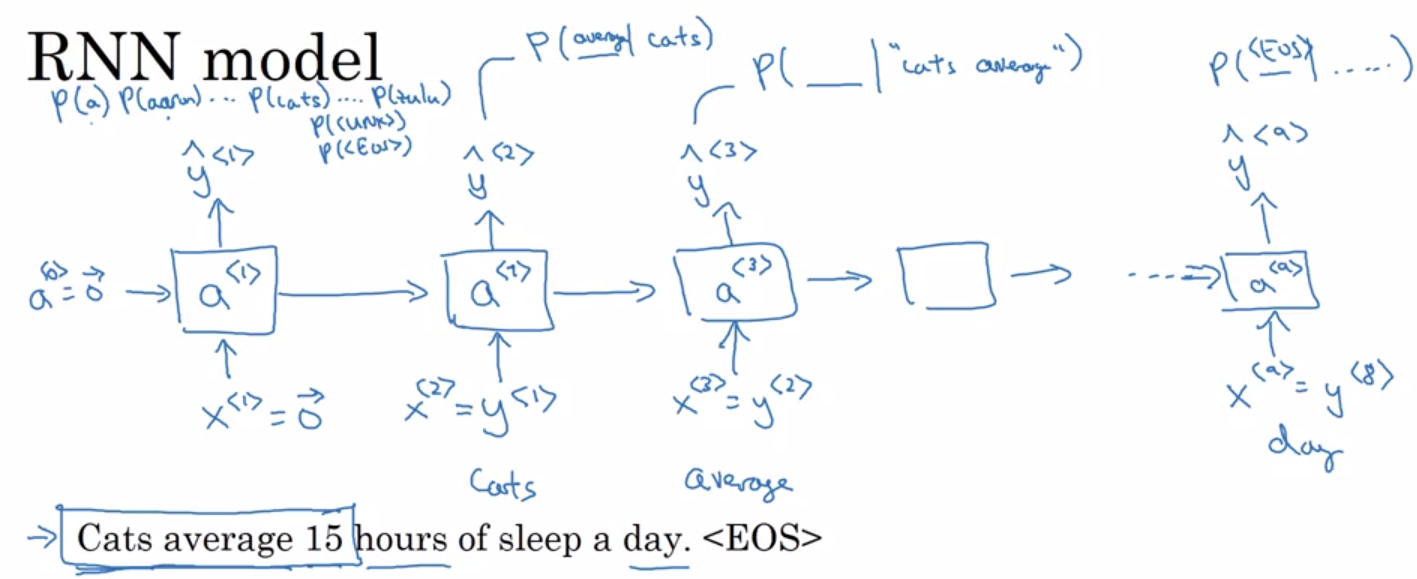 RNN model
P(a) P(aaron) ... P(cats) .... P(zulu)
P(<UNK>)
P(<EOS>)
P(average | cats)
P( __ | "cats average")
P(<EOS> | ......)
ŷ<1> ŷ<2> ŷ<3> ŷ<9>
a<0> = 0⃗ → a<1> → a<2> → a<3> → → ---→ a<9>
x<1> = 0⃗ x<2> = y<1> x<3> = y<2> x<9> = y<8>
Cats average day
→ Cats average 15 hours of sleep a day. <EOS>